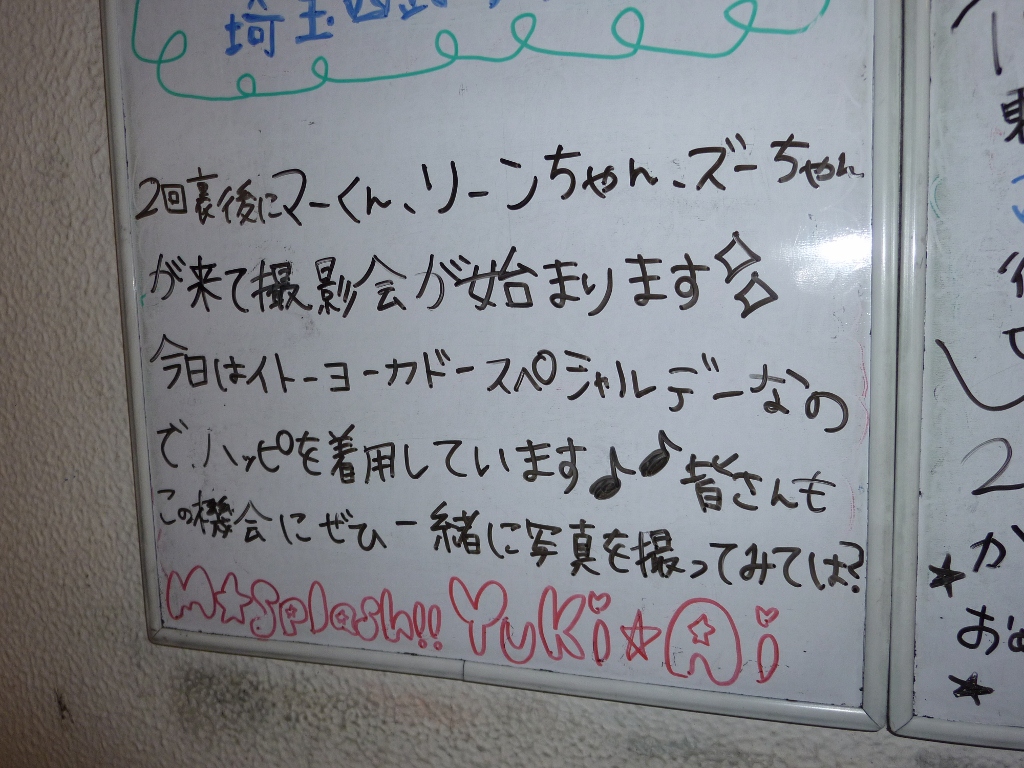 埼玉西武
2回裏後にマーくん、リーンちゃん、ズーちゃん
が来て撮影会が始まります
今日はイトーヨーカドースペシャルデーなの
で、ハッピを着用しています♪♪ 皆さんも
この機会にぜひ一緒に写真を撮ってみては?
M☆Splash!! YuKi☆Ai
2
か
★
お
★